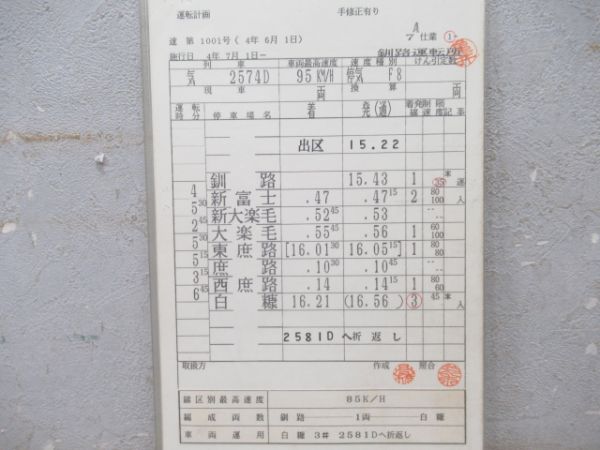 運転計画 手修正有り
達 第 1001号( 4年 6月 1日) 仕業 1
施行日 4年 7月 1日− 釧路運転所
列車 車両最高速度 速度種別 けん引定数
気 2574D 95KM/H 停気 F8
現車 両 換算 両
運転時分 停車場名 着 発(通) 着発線 制限速度 記事
出区 15.22
釧路 15.43 1 35 本 運
4 新富士 .47 .47 15 2 80 100 入
5 30 新大楽毛 .52 45 .53 .. ..
2 45 大楽毛 .55 45 .56 1 60 100
5 30 東庶路 [16.01 30 16.05 15] 1 80 80
5 15 庶路 .10 30 .10 45 .. ..
3 15 西庶路 .14 .14 15 1 80 60
6 45 白糠 16.21 (16.56 ) 3 45 本 入
2581Dへ折返し
取扱方 作成 照合
線区別最高速度 85K/H
編成両数 釧路────1両────白糠
車両運用 白糠 3# 2581Dへ折返し